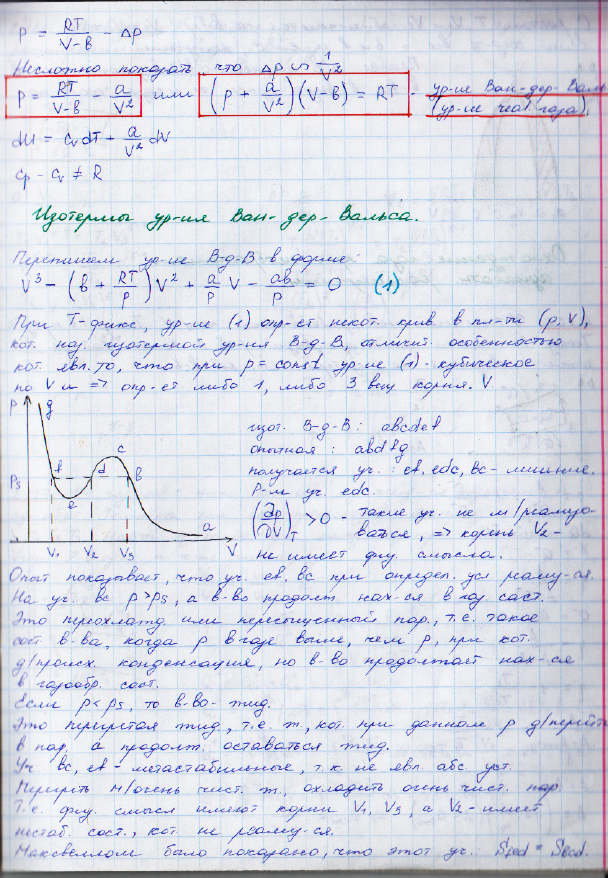 P = RT/(V-в) - Δp
Несложно показать, что Δp ~ 1/V²
P = RT/(V-в) - a/V² или (p + a/V²)(V-в) = RT - ур-ие Ван-дер-Вальс
(ур-ие реал газа).
dU = Cv dT + a/V² dV
Cp - Cv ≠ R
Изотермы ур-ия Ван-дер-Вальса.
Перепишем ур-ие В-д-В в форме:
V³ - (в + RT/p)V² + a/p V - aв/p = 0 (1)
При T-фикс, ур-ие (1) опр-ет некот. крив. в пл-ти (p, V),
кот. наз. изотермой ур-ия В-д-В, отличит. особенностью
кот. явл. то, что при p = const ур-ие (1) - кубическое
по V и => опр-ет либо 1, либо 3 вещ корня. V.
P g
c
Ps f d в
e
a
V₁ V₂ V₃ V
изот. В-д-В: abcdef
опытная: abdfg
получается уч.: ef, edc, вс - лишние.
Р-м уч. edc.
(∂p/∂V)T > 0 - такие уч. не м/реализо-
ваться, => корень V₂ -
не имеет физ. смысла.
Опыт показывает, что уч. ef, вс при определ. усл реализ-ся.
На уч. вс p>ps, а в-во продолж нах-ся в газ сост.
Это переохлажд. или пересыщенный пар, т.е. такое
сост. в-ва, когда p в газе выше, чем p, при кот.
д/происх. конденсация, но в-во продолжает нах-ся
в газообр. сост.
Если p<ps, то в-во - жид.
Это перегретая жид., т.е. ж., кот. при данном p д/перейти
в пар, а продолж. оставаться жид.
Уч вс, ef - метастабильные, т.к. не явл. абс. уст.
Перегреть м/очень чист. ж., охладить очень чист. пар.
Т.е. физ. смысл имеют корни V₁, V₃, а V₂ - имеет
нестаб. сост., кот. не реализ-ся.
Максвеллом было показано, что этот уч.: